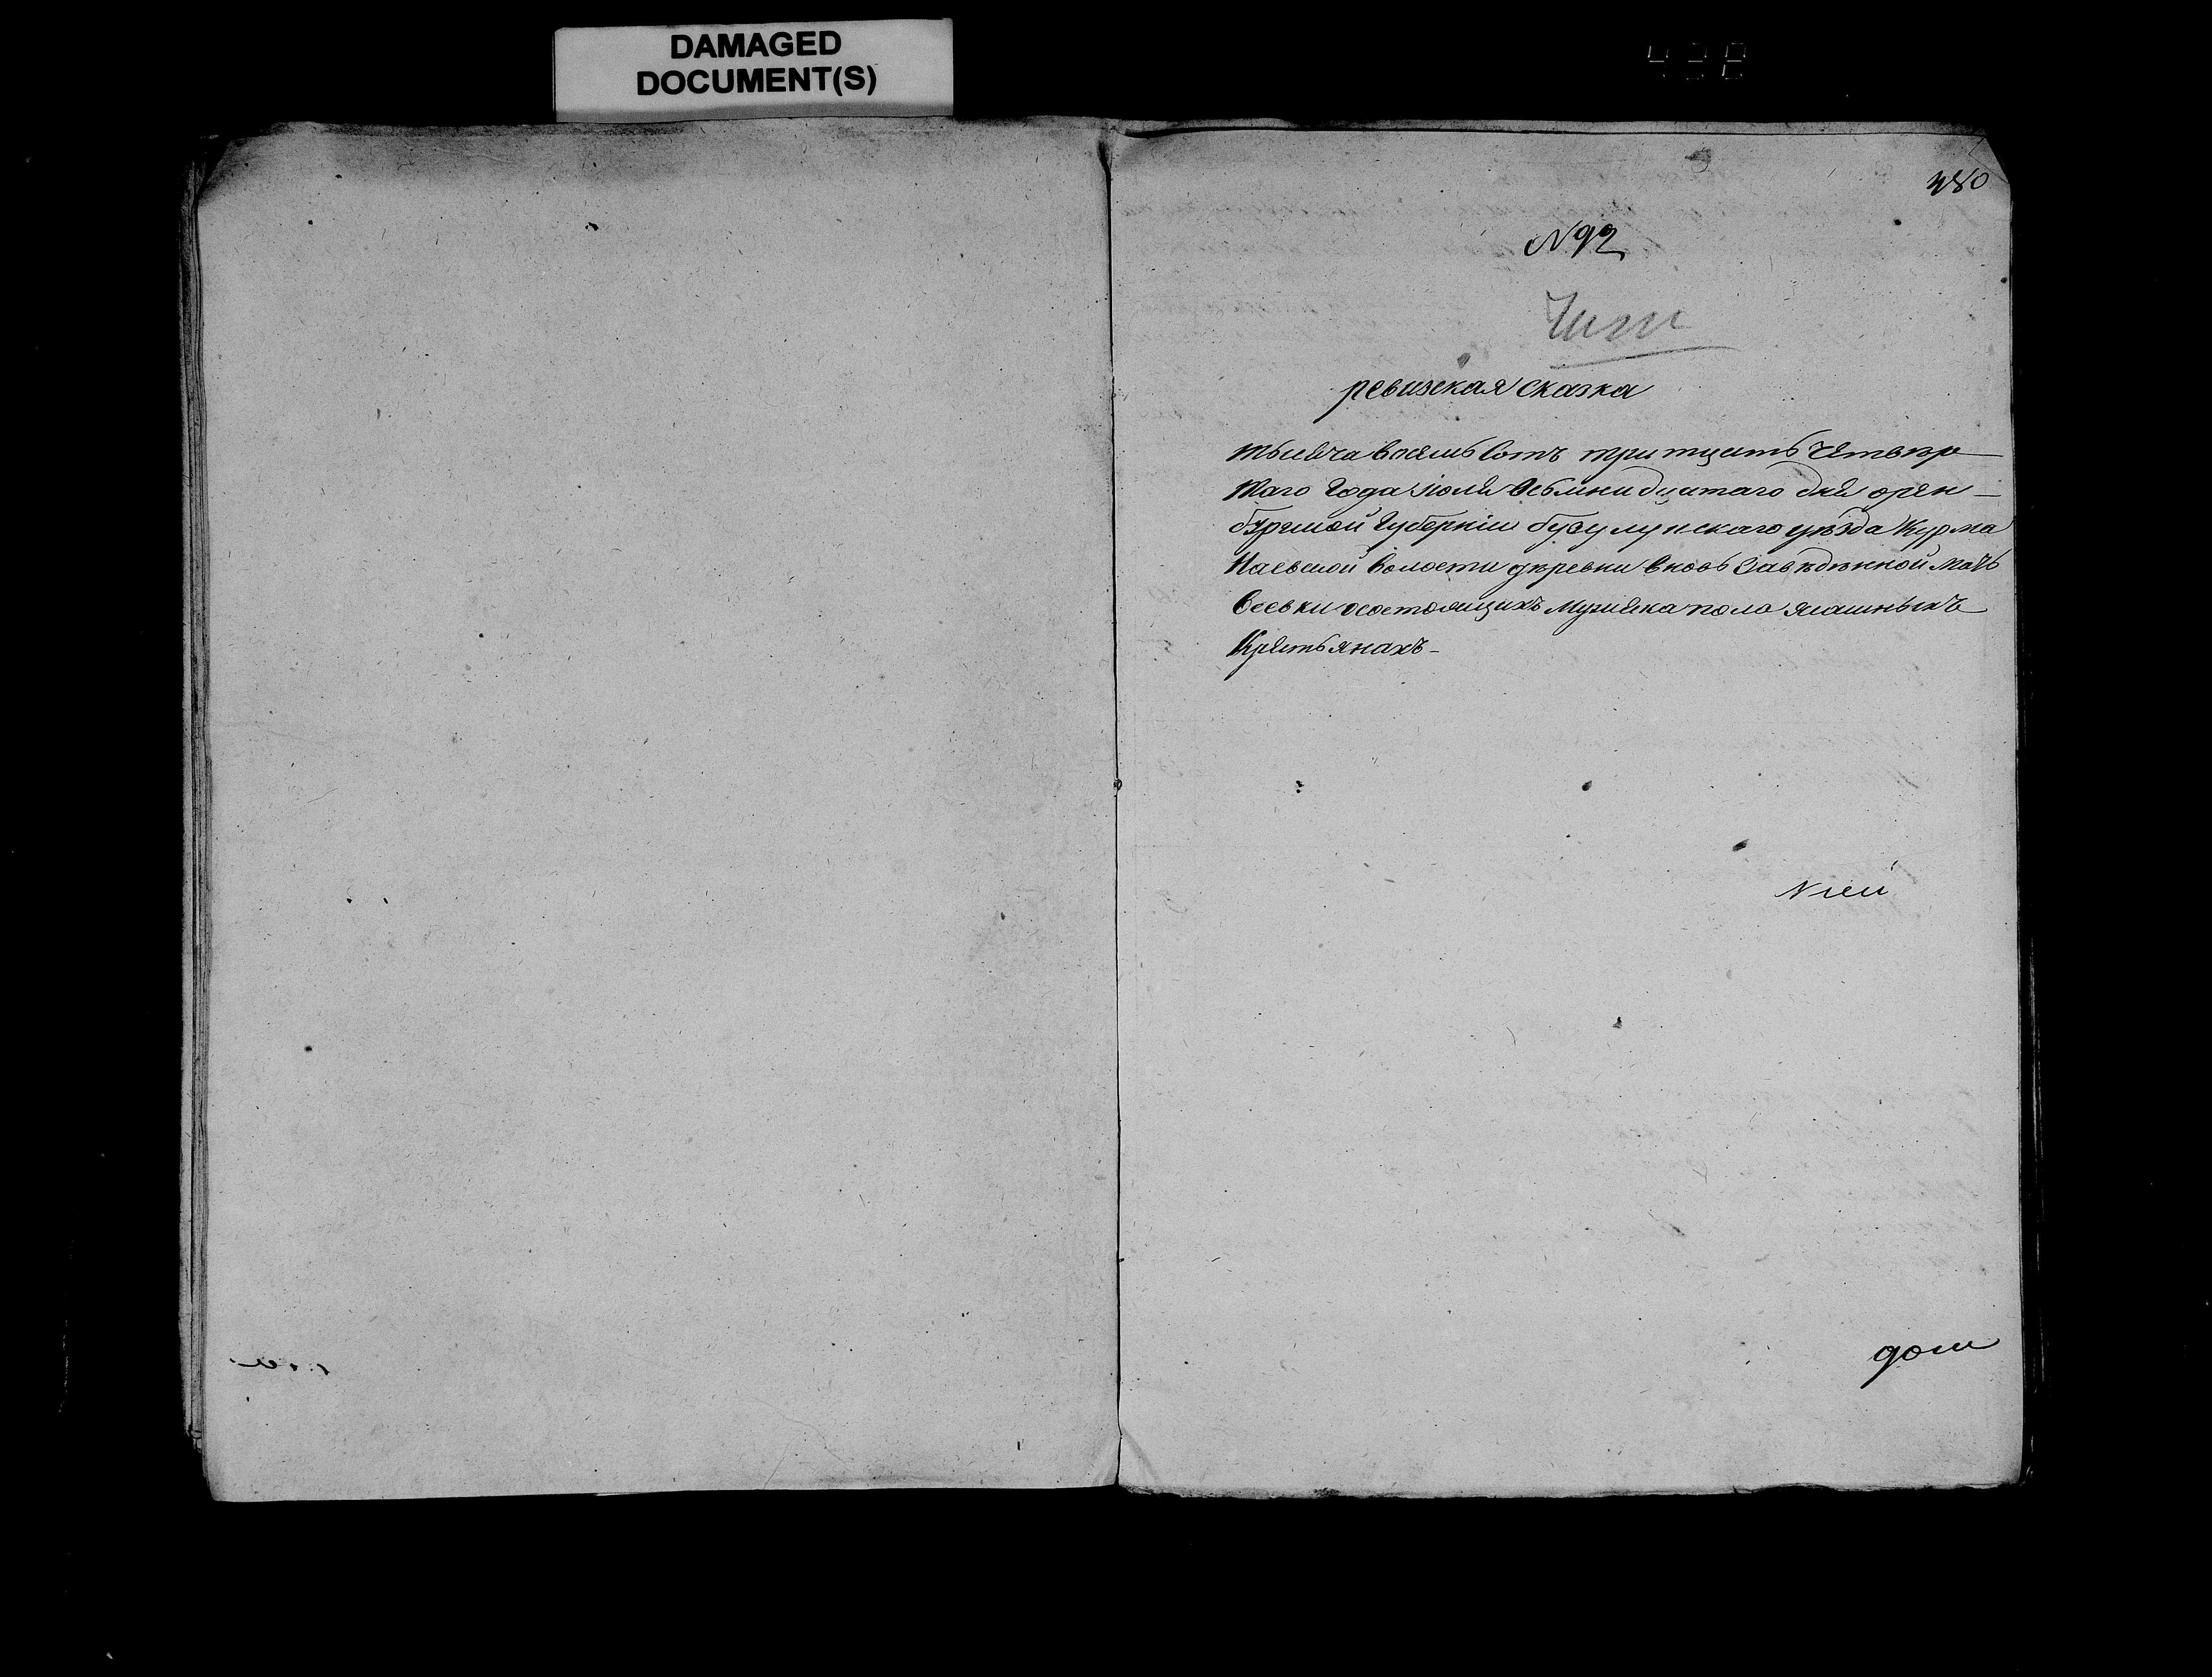 DAMAGED
DOCUMENT(S)
480
N 92
ревизская сказка
тысяча восемь сотъ тритцать четвер
таго года июля осьмнадцатаго дня орен –
бургской губернии бузулукскаго уѣзда Курма
наевской волости деревни вновь заведенной
состоящихъ мужска пола ясашныхъ
крестьянахъ –